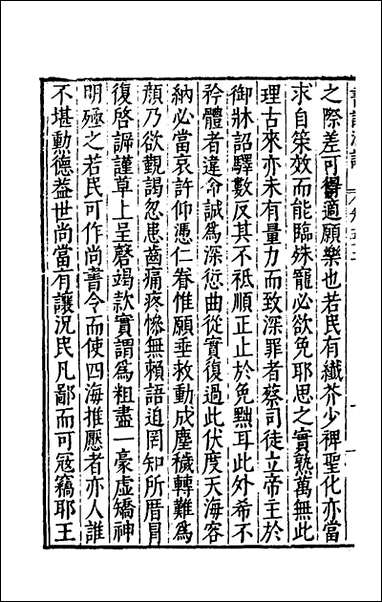 之際差可鬱適願樂也若民有纖芥少稗聖化亦當
求自䇿效而能臨殊寵必欲免耶思之實熟萬無此
理古來亦未有量力而致深罪者蔡司徒立帝王於
御牀詔驛數反其不祇順正止於免黜耳此外希不
矜體者違令誠爲深愆曲從實復過此伏度天海容
納必當哀許仰憑仁眷惟願垂救動成塵穢轉難爲
顔乃欲觀謁忽患齒痛疼慘無賴語迫罔知所厝冐
復啓謘謹草上呈罄竭款實謂爲粗盡一豪虛矯神
明殛之若民可作尚書令而使四海推壓者亦人誰
不堪勳德葢世尚當有讓況民凡鄙而可冦竊耶王